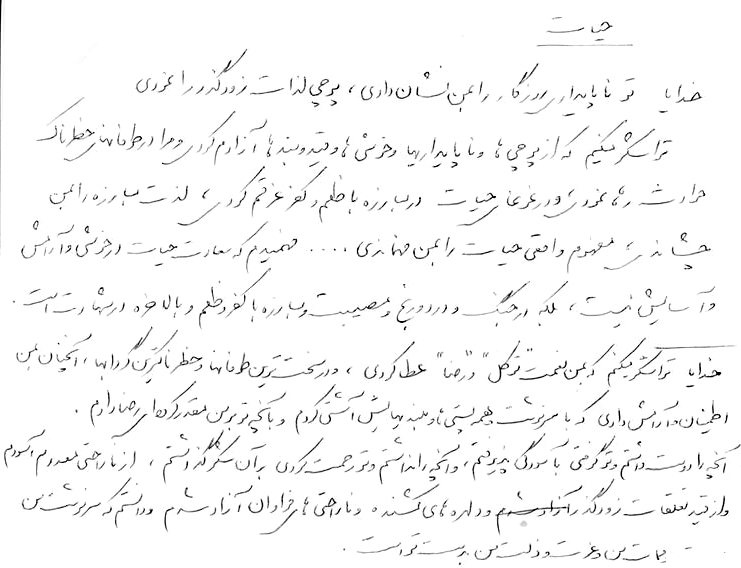 حیات
خدایا تو ناپایداری روزگار را بمن نشان دادی، پوچی لذات زودگذر را نمودی
ترا شکر میکنم که از پوچی ها و ناپایداریها و خوشی ها و قید و بندها آزادم کردی و مرا در طوفانهای خطرناک
حوادث رها نمودی، و در غوغای حیات در مبارزه با ظلم و کفر غرقم کردی، لذت مبارزه را بمن
چشاندی، مفهوم واقعی حیات را بمن فهماندی .... فهمیدم که سعادت حیات در خوشی و آرامش
و آسایش نیست، بلکه در جنگ و درد و رنج و مصیبت و مبارزه با کفر و ظلم و بالاخره در شهادت است.
خدایا ترا شکر میکنم که بمن نعمت "توکل" و "رضا" عطا کردی، و در سخت‌ترین طوفانها و خطرناکترین گردابها، آنچنان بمن
اطمینان و آرامش دادی که با سرنوشت و همه پستی ها و بلندیهایش آشتی کردم و به آنچه تو برمن مقدر کرده‌ای رضا دادم.
آنچه را دوست داشتم و تو گرفتی با آسودگی پذیرفتم، و آنچه را نداشتم و تو رحمت کردی بر آن شکر گذاشتم، از ناراحتی معدوم آسودم
و از قید تعلقات زودگذر و دلهره های کشنده و ناراحتی های فراوان آزاد شدم و دانستم که سرنوشت من
حیات من و عزت و ذلت من بدست تو است.